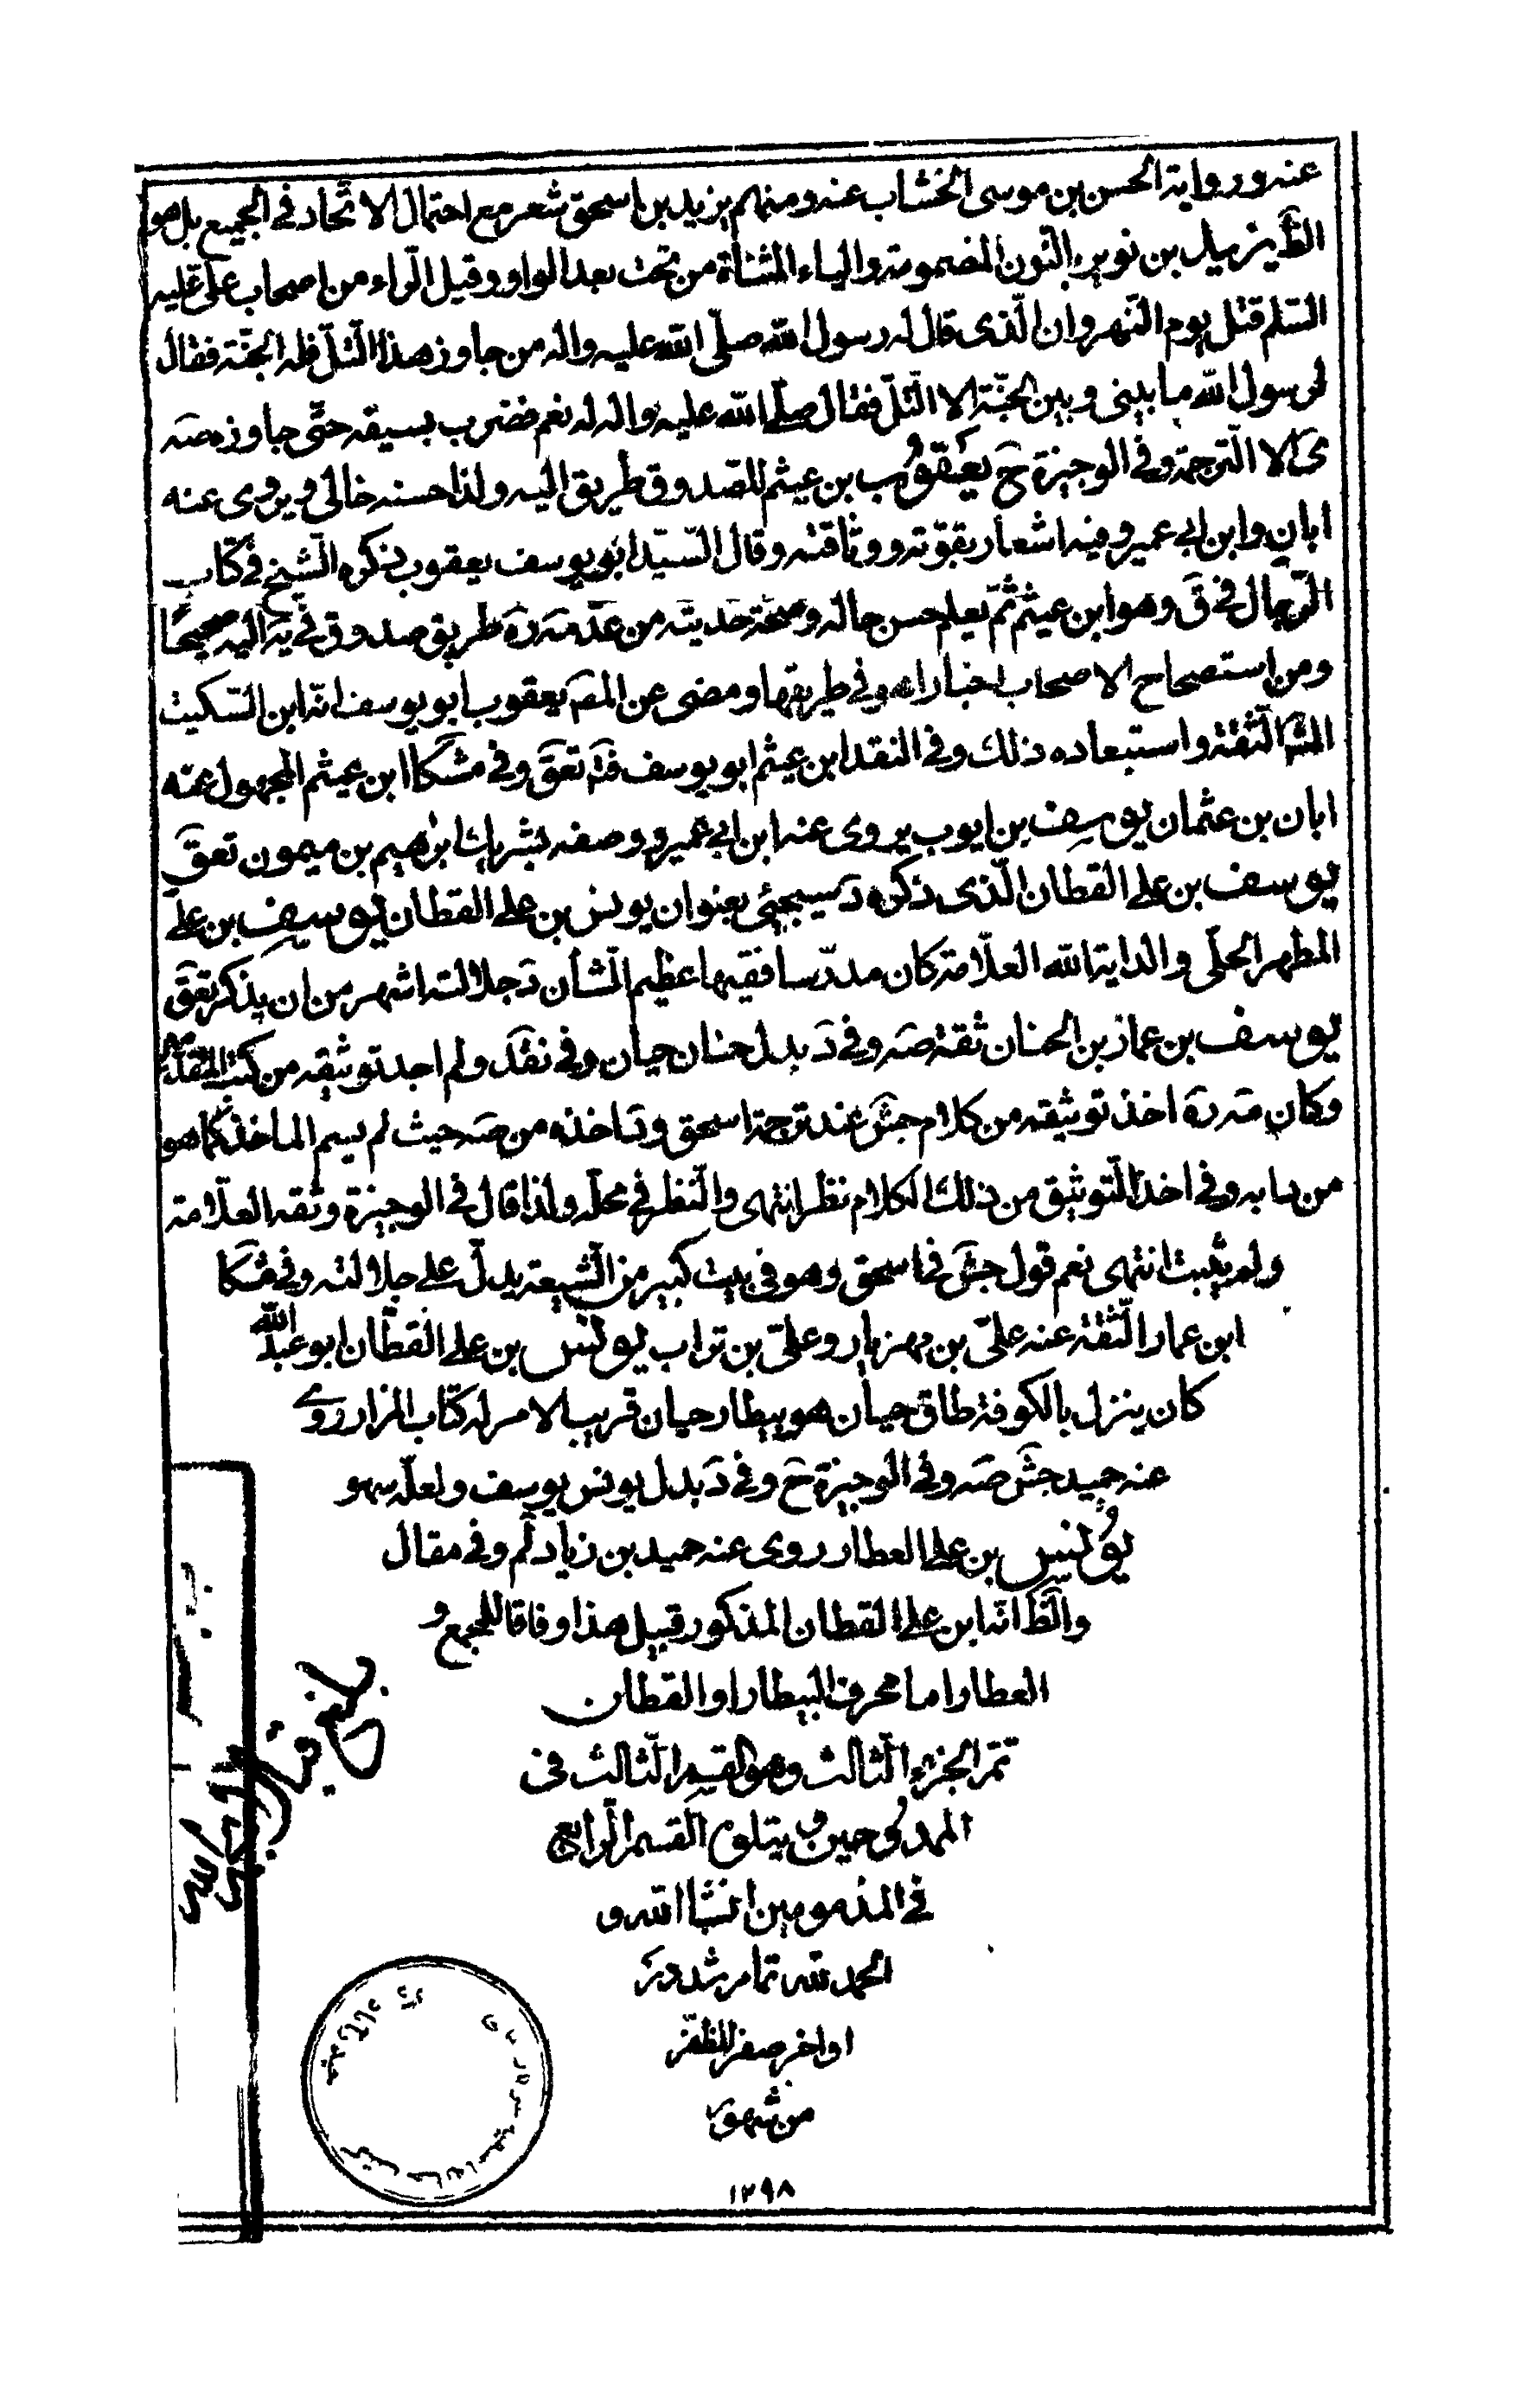 عنه ورواية الحسن بن موسى الخشاب عنه ومنهم يزيد بن اسحق شعر مع احتمال الاتّحاد في الجميع بل هو
الظَ يزيد بن نويرة بالنّون المضمومة والياء المثناة من تحت بعد الواو وقيل الرّاء من اصحاب علىّ عليه
السّلم قتل يوم النّهروان الّذى قال له رسول اللّه صلّى اللّه عليه واله من جاوز هذا التّلّ فله الجنّة فقال
لرسول اللّه ما بيني وبين الجنّة الا التّلّ فقال صلّى اللّه عليه واله له نعم فضرب بسيفه حتّى جاوزه صَه
ىَ الا التّرجمة وفي الوجيزة حَ يعقوب بن عيثم للصّدوق طريق اليه ولذا حسنه خالى ويروى عنه
ابان وابن ابي عمير وفيه اشعار بقوّته ووثاقته وقال السّيّد ابو يوسف يعقوب ذكره الشّيخ في كتاب
الرّجال في قَ وهو ابن عيثم ثمّ يعلم حسن حاله وصحّة حديثه من عدّ مة ره طريق صدوق في يَه اليه صحيحًا
ومن استصحاح الاصحاب اخبارا هو في طريقها ومضى عن المصَ يعقوب ابو يوسف انّه ابن السّكيت
المشَ الثّقة واستبعاده ذلك وفي النقد ابن عيثم ابو يوسف قَ تعقَ وفي مشكا ابن عيثم المجهول عنه
ابان بن عثمان يوسف بن ايوب يروى عنه ابن ابي عمير ووصفه بشريك ابرهيم بن ميمون تعقَ
يوسف بن على القطان الّذى ذكره دَ سيجيئ بعنوان يونس بن على القطان يوسف بن علىّ
المطهر الحلّى والد اية اللّه العلّامة كان مدرّسا فقيها عظيم الشأن دَ جلالته اشهر من ان يذكر تعقَ
يوسف بن عمار بن الحنان ثقة صَه وفي دَ بدل حنان حيان وفي نقَد ولم اجد توثيقه من كتب المتقدّمين
وكان مة ره اخذ توثيقه من كلام جشَ عند ترجمة اسحق ودَ اخذه من صَه حيث لم يسم الماخذ كما هو
من دابه وفي اخذ التّوثيق من ذلك الكلام نظر انتهى والنّظر في محلّه ولذا قال في الوجيزة وثقه العلّامة
ولم يثبت انتهى نعم قول جشَ في اسحق وهو في بيت كبير من الشّيعة يدلّ على جلالته وفي مشكا
ابن عمار الثّقة عنه علىّ بن مهزيار وعلىّ بن تراب يونس بن على القطّان ابو عبد اللّه
كان ينزل بالكوفة طاق حيان هو بيطار حيان قريب الامر له كتاب المزار روى
عنه حميد جشَ صَه وفي الوجيزة حَ وفي دَ بدل يونس يوسف ولعلّه سهو
يونس بن على العطار روى عنه حميد بن زياد لَم وفي مقال
والظَ انّه ابن على القطان المذكور قبيل هذا وفاقا للمجمع و
العطار اما محرف البيطار او القطان
تمّ الجزء الثّالث وهو القسم الثّالث في
الممدوحين ويتلوه القسم الرّابع
في المذمومين انشا اللّه و
الحمد للّه تمام شد در
اواخر صفر المظفّر
من شهور
١٢٩٨